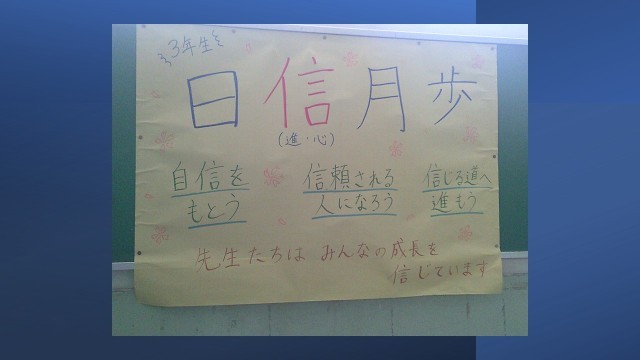 3年生
日信月歩
(進・心)
自信を
もとう
信頼される
人になろう
信じる道へ
進もう
先生たちは みんなの成長を
信じています